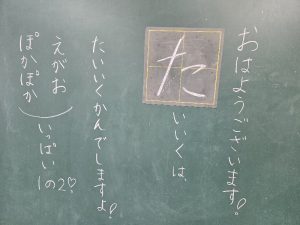 おはようございます!
た
いいくは、
たいいくかんでしますよ!
えがお
ぽかぽか
いっぱい 1の2♡